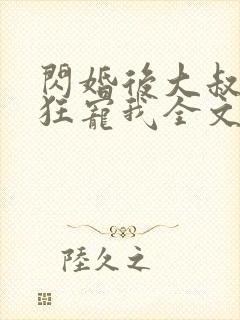 閃婚後大叔
狂寵我全文
陸久之